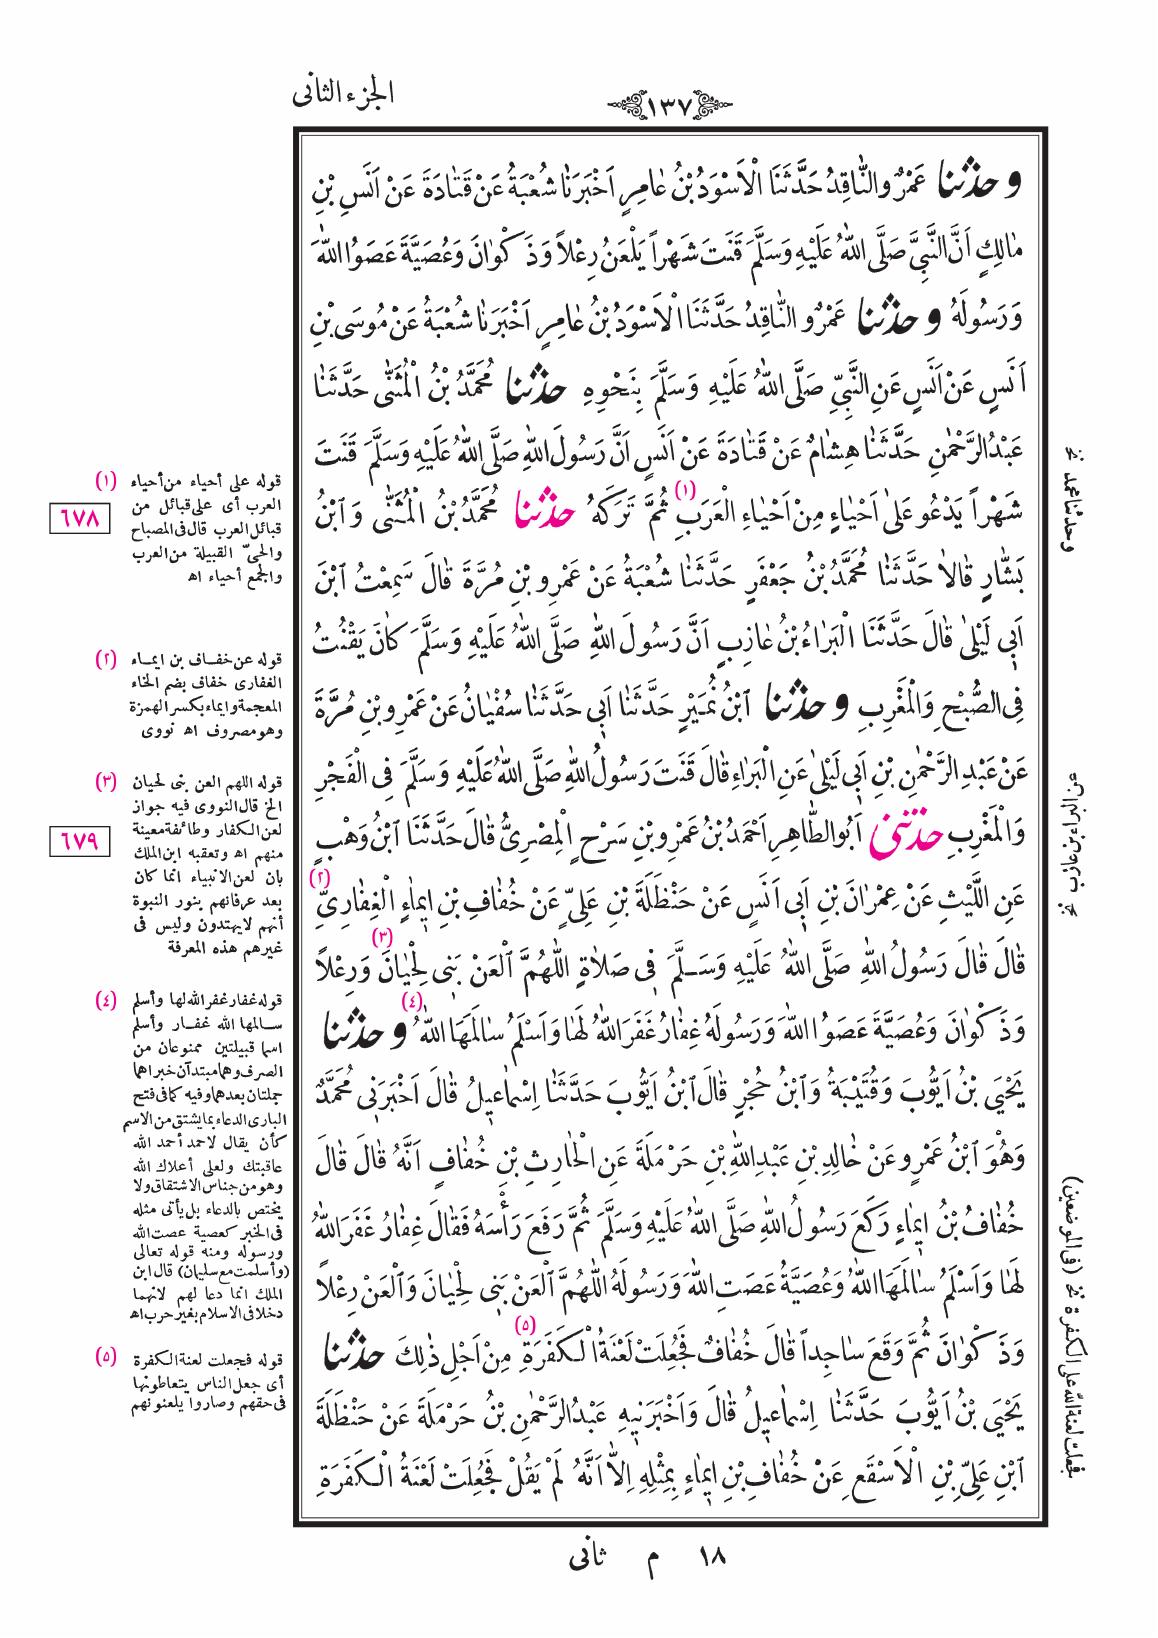 الجزء الثانى
١٣٧
و حدثنا عَمْرٌو النَّاقِدُ حَدَّثَنَا الْاَسْوَدُ بْنُ عَامِرٍ اَخْبَرَنَا شُعْبَةُ عَنْ قَتَادَةَ عَنْ اَنَسِ بْنِ
مَالِكٍ اَنَّ النَّبِىَّ صَلَّى اللّٰهُ عَلَيْهِ وَسَلَّمَ قَنَتَ شَهْراً يَلْعَنُ رِعْلاً وَذَكْوَانَ وَعُصَيَّةَ عَصَوُا اللّٰهَ
وَرَسُولَهُ و حدثنا عَمْرٌو النَّاقِدُ حَدَّثَنَا الْاَسْوَدُ بْنُ عَامِرٍ اَخْبَرَنَا شُعْبَةُ عَنْ مُوسَى بْنِ
اَنَسٍ عَنْ اَنَسٍ عَنِ النَّبِىِّ صَلَّى اللّٰهُ عَلَيْهِ وَسَلَّمَ بِنَحْوِهِ حدثنا مُحَمَّدُ بْنُ الْمُثَنّٰى حَدَّثَنَا
عَبْدُ الرَّحْمٰنِ حَدَّثَنَا هِشَامٌ عَنْ قَتَادَةَ عَنْ اَنَسٍ اَنَّ رَسُولَ اللّٰهِ صَلَّى اللّٰهُ عَلَيْهِ وَسَلَّمَ قَنَتَ
شَهْراً يَدْعُو عَلىٰ اَحْيَاءٍ مِنْ اَحْيَاءِ الْعَرَبِ (١) ثُمَّ تَرَكَهُ حدثنا مُحَمَّدُ بْنُ الْمُثَنّٰى وَابْنُ
بَشَّارٍ قَالاَ حَدَّثَنَا مُحَمَّدُ بْنُ جَعْفَرٍ حَدَّثَنَا شُعْبَةُ عَنْ عَمْرِو بْنِ مُرَّةَ قَالَ سَمِعْتُ ابْنَ
اَبِى لَيْلىٰ قَالَ حَدَّثَنَا الْبَرَاءُ بْنُ عَازِبٍ اَنَّ رَسُولَ اللّٰهِ صَلَّى اللّٰهُ عَلَيْهِ وَسَلَّمَ كَانَ يَقْنُتُ
فِى الصُّبْحِ وَالْمَغْرِبِ و حدثنا ابْنُ نُمَيْرٍ حَدَّثَنَا اَبِى حَدَّثَنَا سُفْيَانُ عَنْ عَمْرِو بْنِ مُرَّةَ
عَنْ عَبْدِ الرَّحْمٰنِ بْنِ اَبِى لَيْلىٰ عَنِ الْبَرَاءِ قَالَ قَنَتَ رَسُولُ اللّٰهِ صَلَّى اللّٰهُ عَلَيْهِ وَسَلَّمَ فِى الْفَجْرِ
وَالْمَغْرِبِ حدثنى اَبُو الطَّاهِرِ اَحْمَدُ بْنُ عَمْرِو بْنِ سَرْحٍ الْمِصْرِىُّ قَالَ حَدَّثَنَا ابْنُ وَهْبٍ
عَنِ اللَّيْثِ عَنْ عِمْرَانَ بْنِ اَبِى اَنَسٍ عَنْ حَنْظَلَةَ بْنِ عَلِىٍّ عَنْ خُفَافِ بْنِ اِيمَاءٍ الْغِفَارِىِّ (٢)
قَالَ قَالَ رَسُولُ اللّٰهِ صَلَّى اللّٰهُ عَلَيْهِ وَسَلَّمَ فِى صَلاَةٍ اللّٰهُمَّ الْعَنْ بَنِى لِحْيَانَ (٣) وَرِعْلاً
وَذَكْوَانَ وَعُصَيَّةَ عَصَوُا اللّٰهَ وَرَسُولَهُ غِفَارُ غَفَرَ اللّٰهُ لَهَا وَاَسْلَمُ سَالَمَهَا اللّٰهُ (٤) و حدثنا
يَحْيَى بْنُ اَيُّوبَ وَقُتَيْبَةُ وَابْنُ حُجْرٍ قَالَ ابْنُ اَيُّوبَ حَدَّثَنَا اِسْمَاعِيلُ قَالَ اَخْبَرَنِى مُحَمَّدٌ
وَهُوَ ابْنُ عَمْرٍو عَنْ خَالِدِ بْنِ عَبْدِ اللّٰهِ بْنِ حَرْمَلَةَ عَنِ الْحَارِثِ بْنِ خُفَافٍ اَنَّهُ قَالَ قَالَ
خُفَافُ بْنُ اِيمَاءٍ رَكَعَ رَسُولُ اللّٰهِ صَلَّى اللّٰهُ عَلَيْهِ وَسَلَّمَ ثُمَّ رَفَعَ رَأْسَهُ فَقَالَ غِفَارُ غَفَرَ اللّٰهُ
لَهَا وَاَسْلَمُ سَالَمَهَا اللّٰهُ وَعُصَيَّةُ عَصَتِ اللّٰهَ وَرَسُولَهُ اللّٰهُمَّ الْعَنْ بَنِى لِحْيَانَ وَالْعَنْ رِعْلاً
وَذَكْوَانَ ثُمَّ وَقَعَ سَاجِداً قَالَ خُفَافٌ فَجُعِلَتْ لَعْنَةُ الْكَفَرَةِ (٥) مِنْ اَجْلِ ذٰلِكَ حدثنا
يَحْيَى بْنُ اَيُّوبَ حَدَّثَنَا اِسْمَاعِيلُ قَالَ وَاَخْبَرَنِيهِ عَبْدُ الرَّحْمٰنِ بْنُ حَرْمَلَةَ عَنْ حَنْظَلَةَ
ابْنِ عَلِىِّ بْنِ الْاَسْقَعِ عَنْ خُفَافِ بْنِ اِيمَاءٍ بِمِثْلِهِ اِلاَّ اَنَّهُ لَمْ يَقُلْ فَجُعِلَتْ لَعْنَةُ الْكَفَرَةِ
(١) قوله على أحياء من أحياء
العرب أى على قبائل من
قبائل العرب قال فى المصباح
والحىّ القبيلة من العرب
والجمع أحياء اه
٦٧٨
(٢) قوله عن خفاف بن ايماء
الغفارى خفاف بضم الخاء
المعجمة وايماء بكسر الهمزة
وهو مصروف اه نووى
(٣) قوله اللهم العن بنى لحيان
الخ قال النووى فيه جواز
لعن الكفار وطائفة معينة
منهم اه وتعقبه ابن الملك
بان لعن الانبياء انما كان
بعد عرفانهم بنور النبوة
أنهم لا يهتدون وليس فى
غيرهم هذه المعرفة
٦٧٩
(٤) قوله غفار غفر الله لها وأسلم
سالمها الله غفار وأسلم
اسما قبيلتين ممنوعان من
الصرف وهما مبتدآن خبراهما
جملتان بعدهما وفيه كما فى فتح
البارى الدعاء بما يشتق من الاسم
كأن يقال لاحمد أحمد الله
عاقبتك ولعلى أعلاك الله
وهو من جناس الاشتقاق ولا
يختص بالدعاء بل يأتى مثله
فى الخبر كعصية عصت الله
ورسوله ومنه قوله تعالى
(وأسلمت مع سليمان) قال ابن
الملك انما دعا لهم لانهما
دخلا فى الاسلام بغير حرب اه
(٥) قوله فجعلت لعنة الكفرة
أى جعل الناس يتعاطونها
فى حقهم وصاروا يلعنونهم
وحدثنا محمد نخ
عن البراء بن عازب نخ
فجعلت لعنة الله على الكفرة نخ (فى الموضعين)
١٨ م ثانى